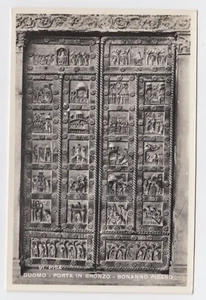 PISA
DUOMO - PORTA IN BRONZO - BONANNO PISANO